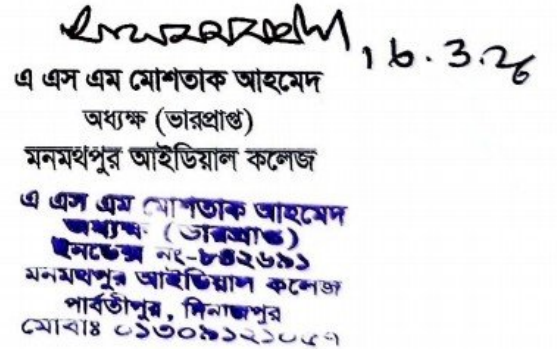 16.3.26
এ এস এম মোশতাক আহমেদ
অধ্যক্ষ (ভারপ্রাপ্ত)
মনমথপুর আইডিয়াল কলেজ
এ এস এম মোশতাক আহমেদ
অধ্যক্ষ (ভারপ্রাপ্ত)
ইনডেক্স নং-৮৪২৬৯১
মনমথপুর আইডিয়াল কলেজ
পার্বতীপুর, দিনাজপুর
মোবাঃ